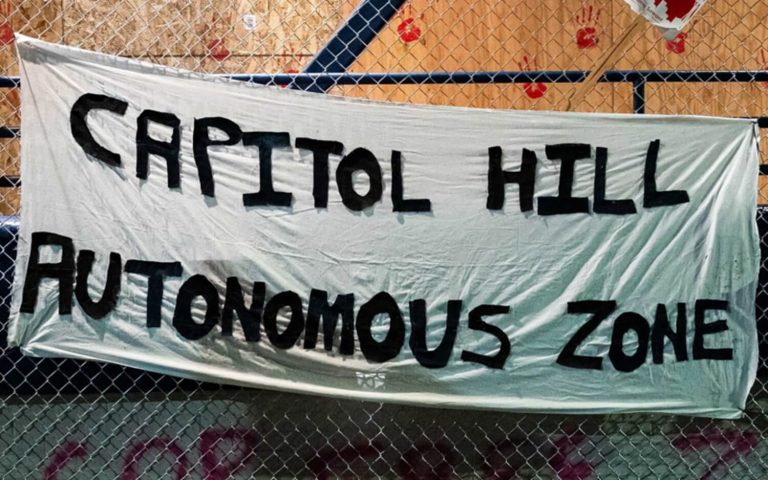 CAPITOL HILL
AUTONOMOUS ZONE
COP FREE Z